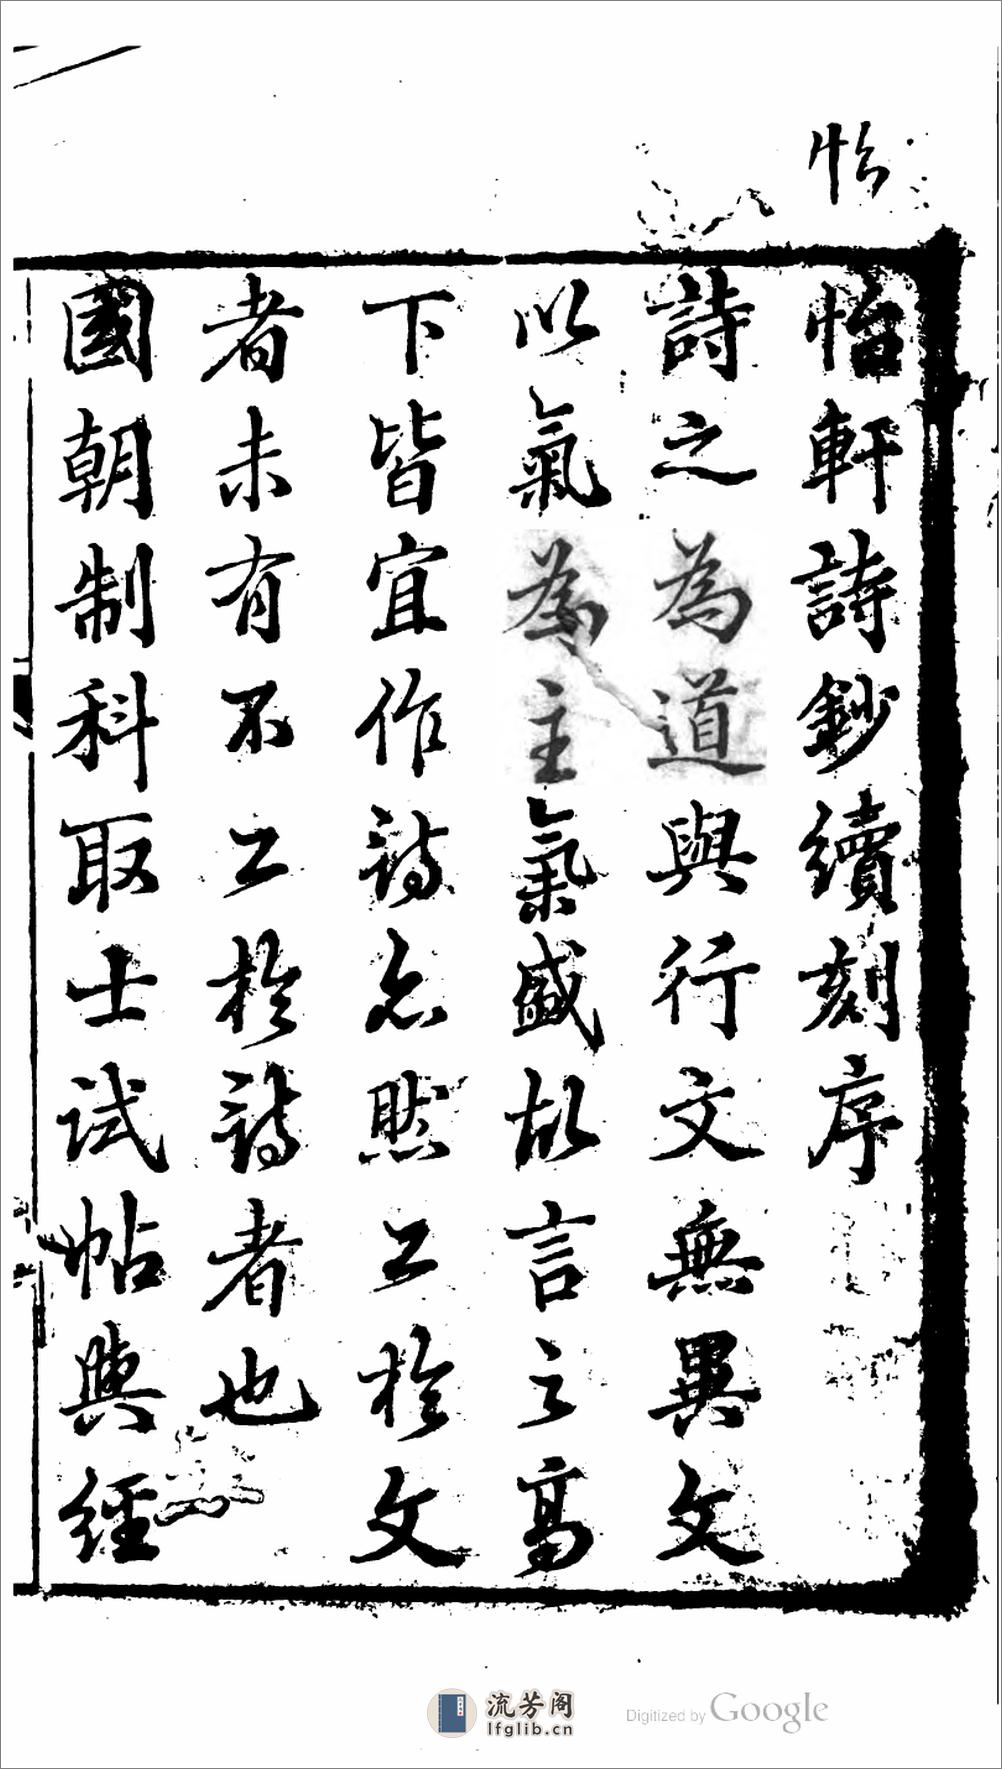 怡
怡軒詩鈔續刻序
詩之為道與行文無異文
以氣為主氣盛故言之高
下皆宜作詩亦然工於文
者未有不工於詩者也
國朝制科取士試帖與經
流芳阁
lfglib.cn
Digitized by Google